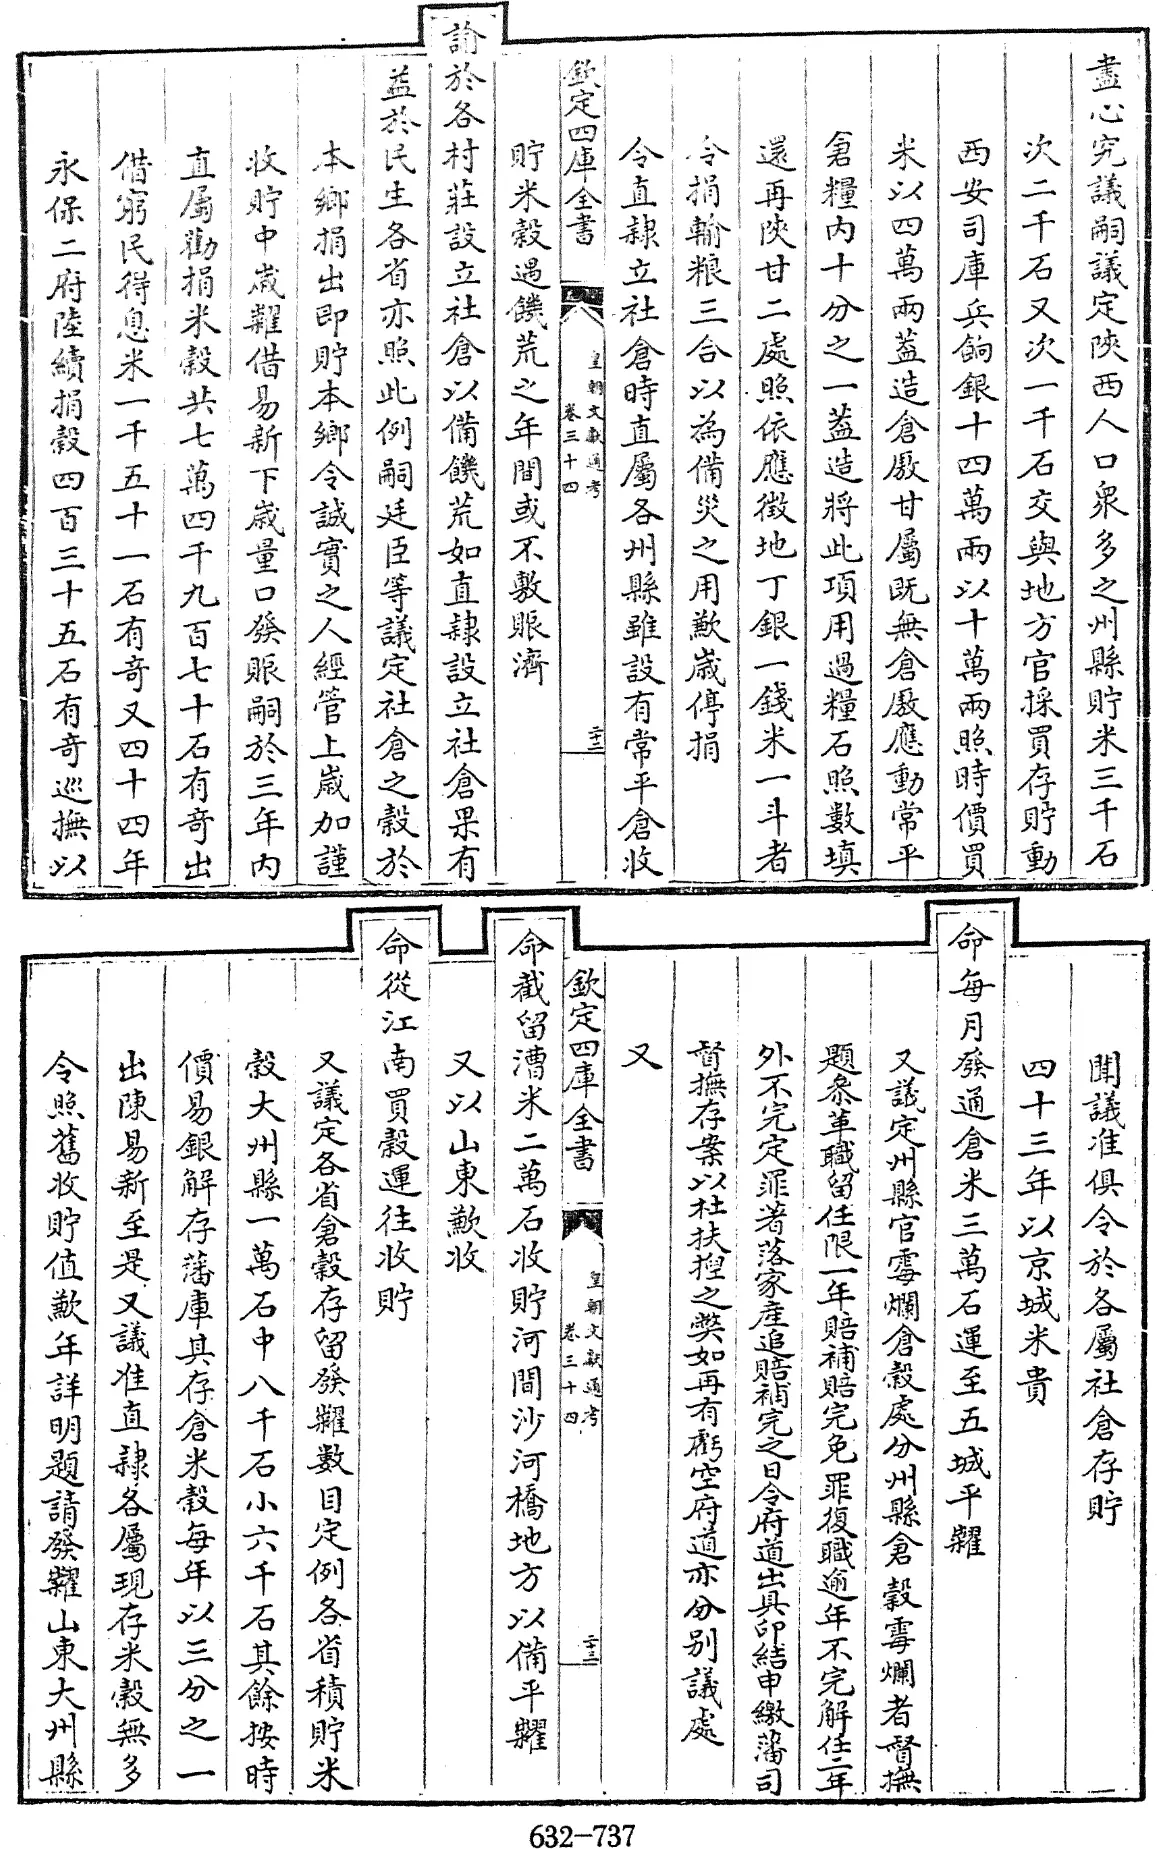 盡心究議嗣議定陝西人口衆多之州縣貯米三千石
次二千石又次一千石交與地方官採買存貯動
西安司庫兵餉銀十四萬兩以十萬兩照時價買
米以四萬兩蓋造倉厫甘屬既無倉厫應動常平
倉糧内十分之一蓋造將此項用過糧石照數填
還再陝甘二處照依應徵地丁銀一錢米一斗者
令捐輸粮三合以為備災之用歉歲停捐
令直隸立社倉時直屬各州縣雖設有常平倉收
欽定四庫全書
皇朝文獻通考
卷三十四
二十二
貯米穀遇饑荒之年間或不敷賑濟
諭於各村莊設立社倉以備饑荒如直隸設立社倉果有
益於民生各省亦照此例嗣廷臣等議定社倉之穀於
本鄉捐出即貯本鄉令誠實之人經管上歲加謹
收貯中歲糶借易新下歲量口發賑嗣於三年内
直屬勸捐米穀共七萬四千九百七十石有奇出
借窮民得息米一千五十一石有奇又四十四年
永保二府陸續捐穀四百三十五石有奇巡撫以
聞議准俱令於各屬社倉存貯
四十三年以京城米貴
命每月發通倉米三萬石運至五城平糶
又議定州縣官霉爛倉穀處分州縣倉穀霉爛者督撫
題叅革職留任限一年賠補賠完免罪復職逾年不完解任二年
外不完定罪著落家産追賠補完之日令府道出具印結申繳藩司
督撫存案以杜扶揑之弊如再有虧空府道亦分别議處
又
欽定四庫全書
皇朝文獻通考
卷三十四
二十三
命截留漕米二萬石收貯河間沙河橋地方以備平糶
又以山東歉收
命從江南買穀運往收貯
又議定各省倉穀存留發糶數目定例各省積貯米
穀大州縣一萬石中八千石小六千石其餘按時
價易銀解存藩庫其存倉米穀每年以三分之一
出陳易新至是又議准直隸各屬現存米穀無多
令照舊收貯值歉年詳明題請發糶山東大州縣
632-737